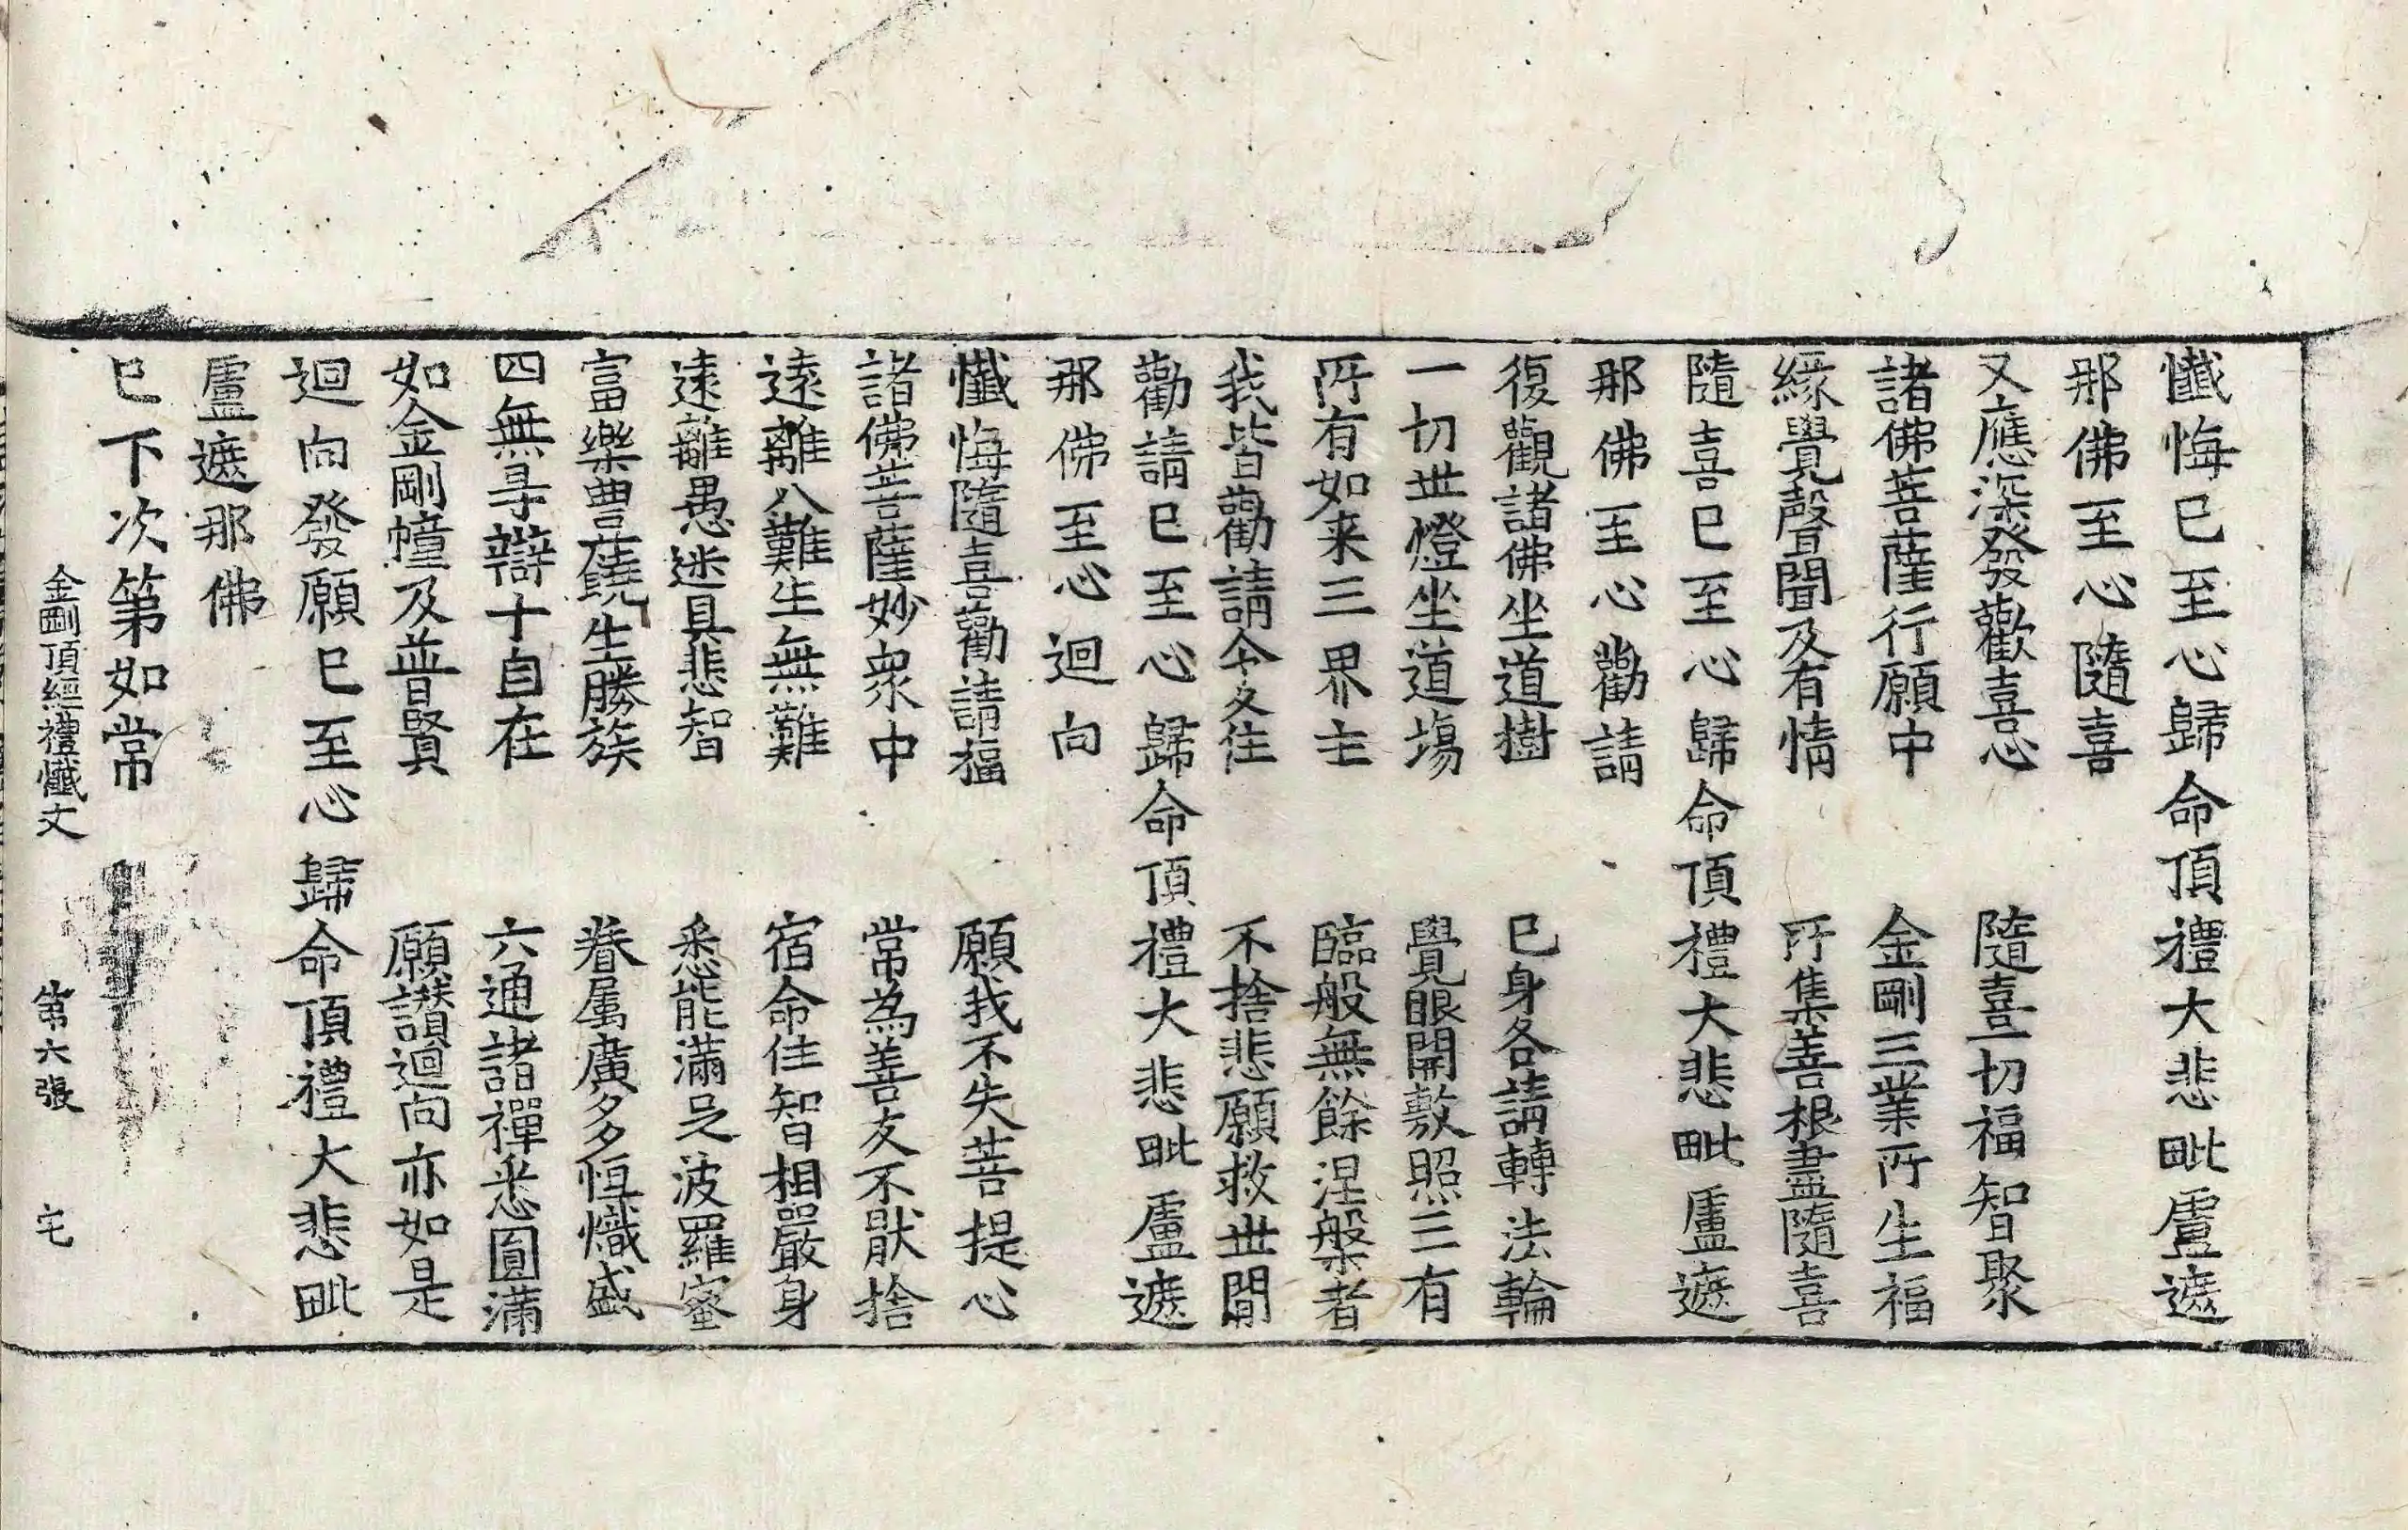 懺悔已至心歸命頂禮大悲毗盧遮
那佛至心隨喜
又應深發歡喜心　隨喜一切福智聚
諸佛菩薩行願中　金剛三業所生福
緣覺聲聞及有情　所集善根盡隨喜
隨喜已至心歸命頂禮大悲毗盧遮
那佛至心勸請
復觀諸佛坐道樹　已身各請轉法輪
一切世燈坐道場　覺眼開敷照三有
所有如来三界主　臨般無餘涅槃者
我皆勸請令久住　不捨悲願救世間
勸請已至心歸命頂禮大悲毗盧遮
那佛至心迴向
懺悔隨喜勸請福　願我不失菩提心
諸佛菩薩妙衆中　常為善友不厭捨
遠離八難生無難　宿命住智相嚴身
遠離愚迷具悲智　悉能滿足波羅蜜
富樂豊饒生勝族　眷属廣多恒熾盛
四無㝵辯十自在　六通諸禪悉圓滿
如金剛幢及普賢　願讃迴向亦如是
迴向發願已至心歸命頂禮大悲毗
盧遮那佛
已下次第如常
金剛頂經禮懺文　第六張　宅